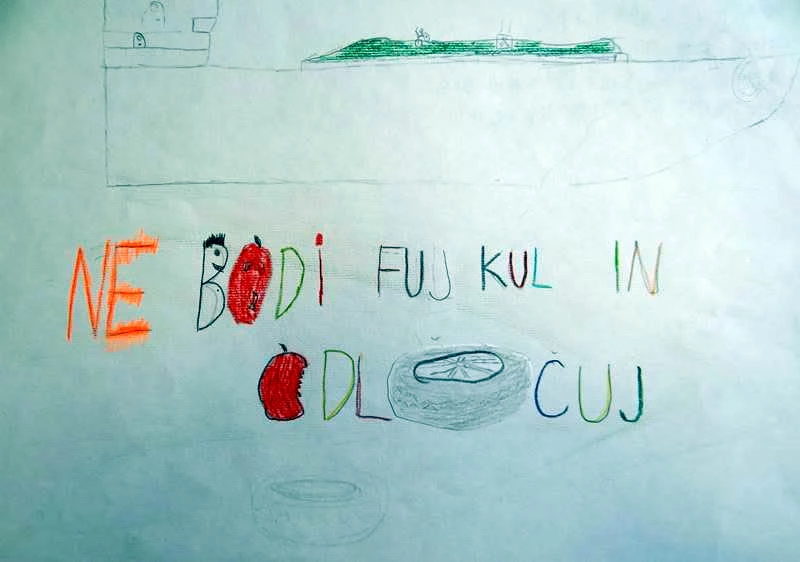 NE BODI FUJ KUL IN
ODLOČUJ